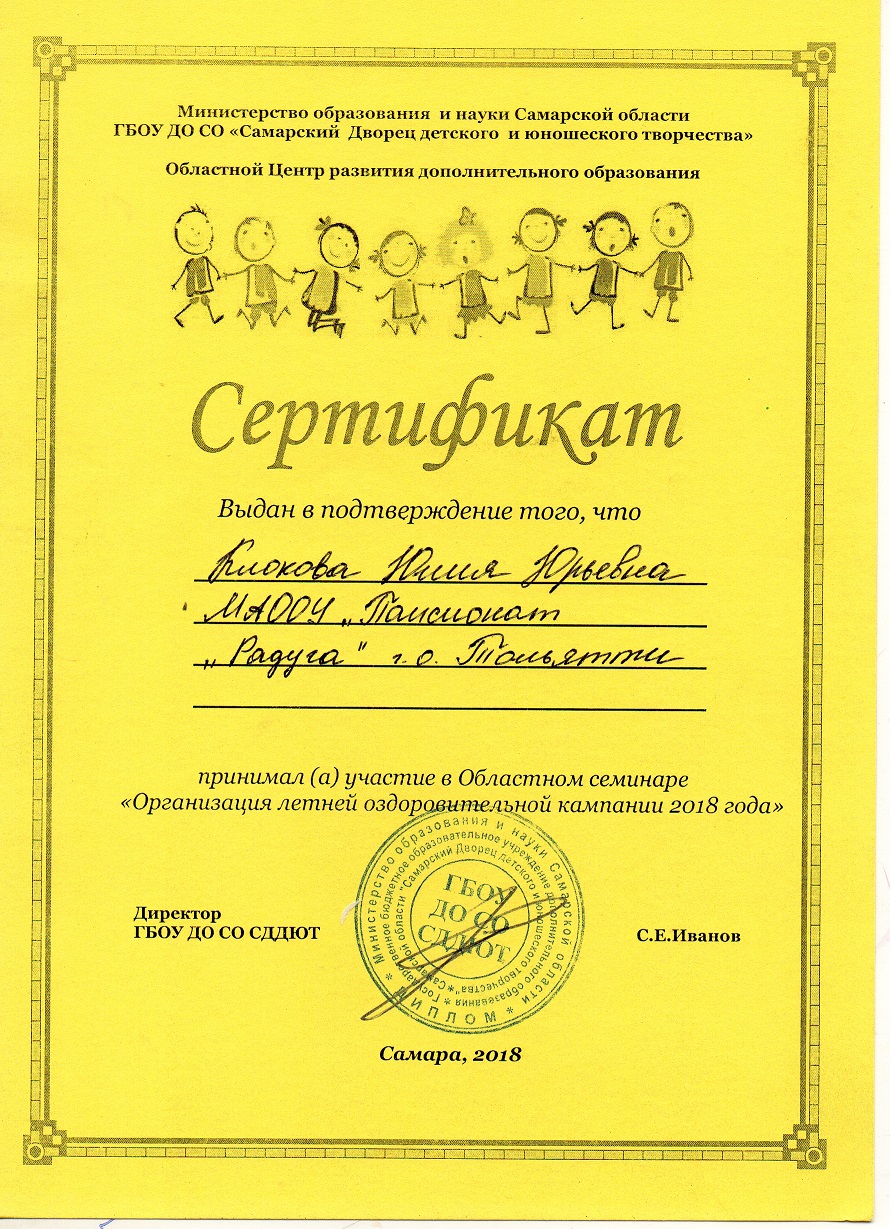 Министерство образования и науки Самарской области
ГБОУ ДО СО «Самарский Дворец детского и юношеского творчества»
Областной Центр развития дополнительного образования
Сертификат
Выдан в подтверждение того, что
Клокова Юлия Юрьевна
МАООУ „Пансионат
„Радуга" г.о. Тольятти
принимал (а) участие в Областном семинаре
«Организация летней оздоровительной кампании 2018 года»
* Министерство образования и науки Самарской области *
ДИПЛОМ
* Государственное бюджетное образовательное учреждение дополнительного образования
Самарской области "Самарский Дворец детского и юношеского творчества" *
ГБОУ
ДО СО
СДДЮТ
Директор
ГБОУ ДО СО СДДЮТ
С.Е.Иванов
Самара, 2018